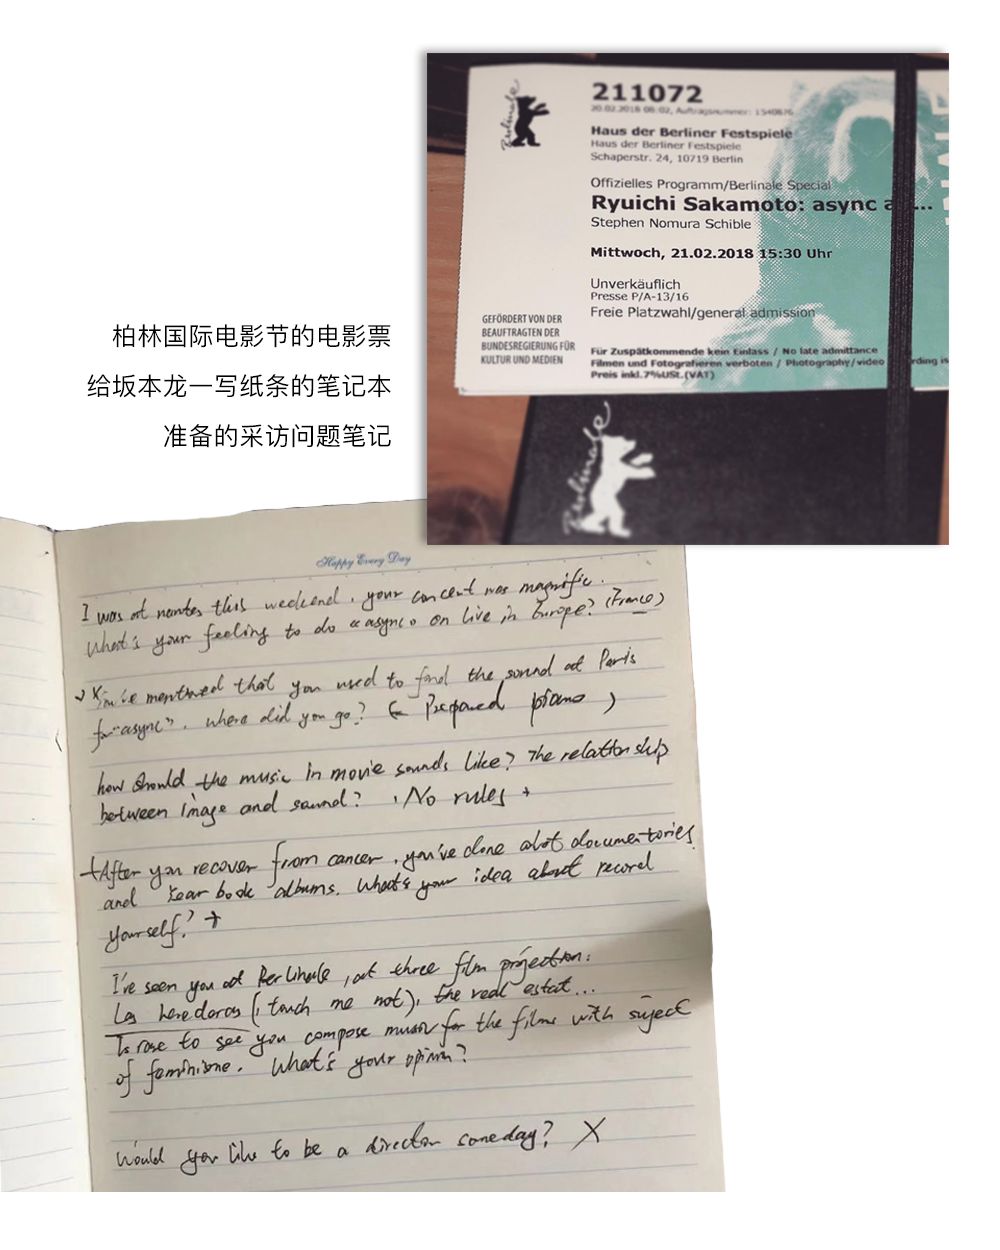 211072
20.02.2018 06:02, Auftragsnummer: 1540876
Haus der Berliner Festspiele
Haus der Berliner Festspiele
Schaperstr. 24, 10719 Berlin
Offizielles Programm/Berlinale Special
Ryuichi Sakamoto: async a...
Stephen Nomura Schible
Mittwoch, 21.02.2018 15:30 Uhr
Unverkäuflich
Presse P/A-13/16
Freie Platzwahl/general admission
GEFÖRDERT VON DER
BEAUFTRAGTEN DER
BUNDESREGIERUNG FÜR
KULTUR UND MEDIEN
Für Zuspätkommende kein Einlass / No late admittance
Filmen und Fotografieren verboten / Photography/video rding is
Preis inkl.7%USt.(VAT)
Berlinale
Berlinale
柏林国际电影节的电影票
给坂本龙一写纸条的笔记本
准备的采访问题笔记
Happy Every Day
I was at nantes this weekend, your concert was magnific.
What's your feeling to do «async» on live in Europe? (France)
You've mentioned that you used to find the sound at Paris
for "async", where did you go? ( Prepared piano )
how should the music in movie sounds like? The relationship
between image and sound? No rules +
+After you recover from cancer, you've done alot documentories
and book albums. What's your idea about record
yourself? +
I've seen you at Berlinale, at three film projection:
Las herederas (, touch me not), the real estat...
Is rare to see you compose music for the films with suject
of feminisme. What's your opinion?
Would you like to be a director someday? X